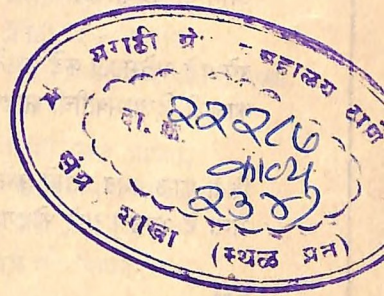 मराठी ग्रं संग्रहालय ठाणे
दा. क्र. २२२८७
काव्य
२३७२
शाखा (स्थळ प्रत)